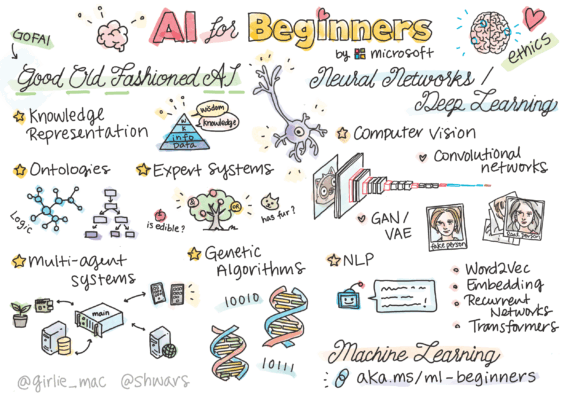 GOFAI
AI for Beginners
by microsoft
ethics
Good Old Fashioned AI
Knowledge
Representation
wisdom
knowledge
W
K
info
Data
Ontologies
Logic
Expert Systems
is edible?
&
OR
has fur?
Multi-agent
systems
main
Genetic
Algorithms
10010
10111
Neural Networks /
Deep Learning
Computer Vision
Convolutional
networks
GAN/
VAE
fake person
NLP
Word2Vec
Embedding
Recurrent
Networks
Transformers
Machine Learning
aka.ms/ml-beginners
@girlie_mac @shwars